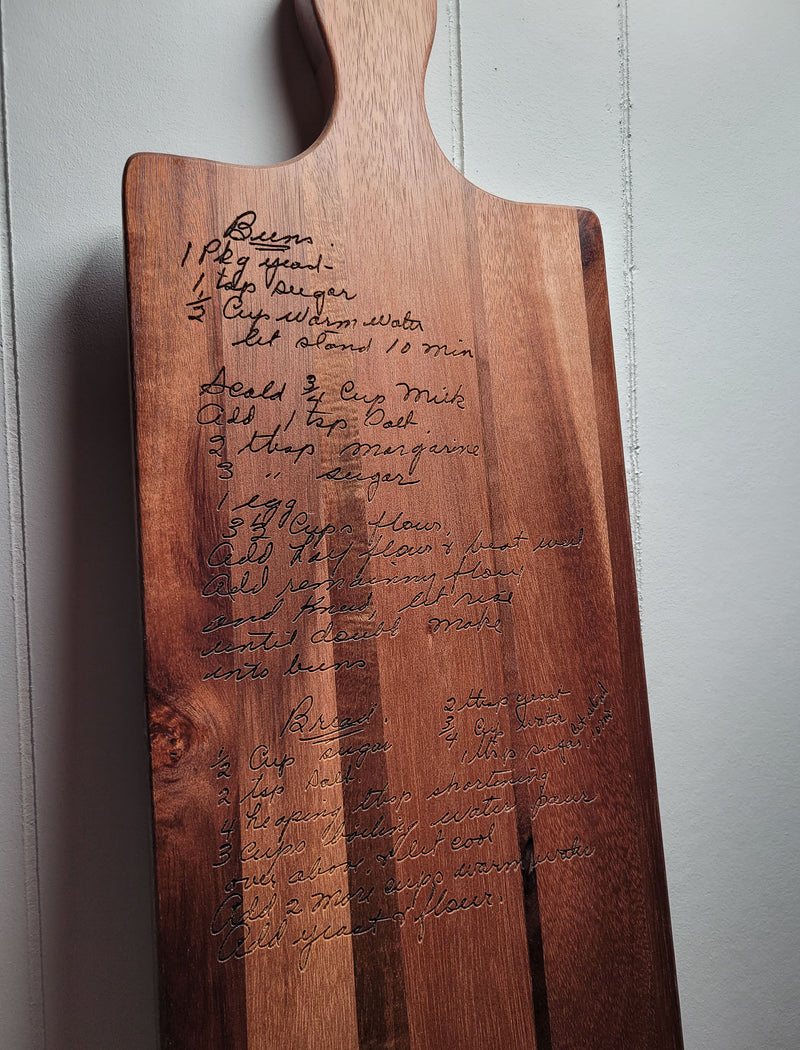 Buns.
1 Pkg yeast
1 tsp sugar
1/2 Cup warm water
let stand 10 min
Scald 3/4 Cup Milk
Add 1 tsp Salt.
2 tbsp margarine
3 " sugar
1 egg
3 1/2 Cups flour.
Add half flour & beat well
Add remaining flour
and knead, let rise
until double make
into buns
Bread.
2 tbsp yeast
3/4 Cup water
1 tsp sugar. let stand 10 min
1/2 Cup sugar
2 tsp Salt
4 heaping tbsp shortening
3 Cups boiling water pour
over above. & let cool
Add 2 more cups warm water
Add yeast & flour.